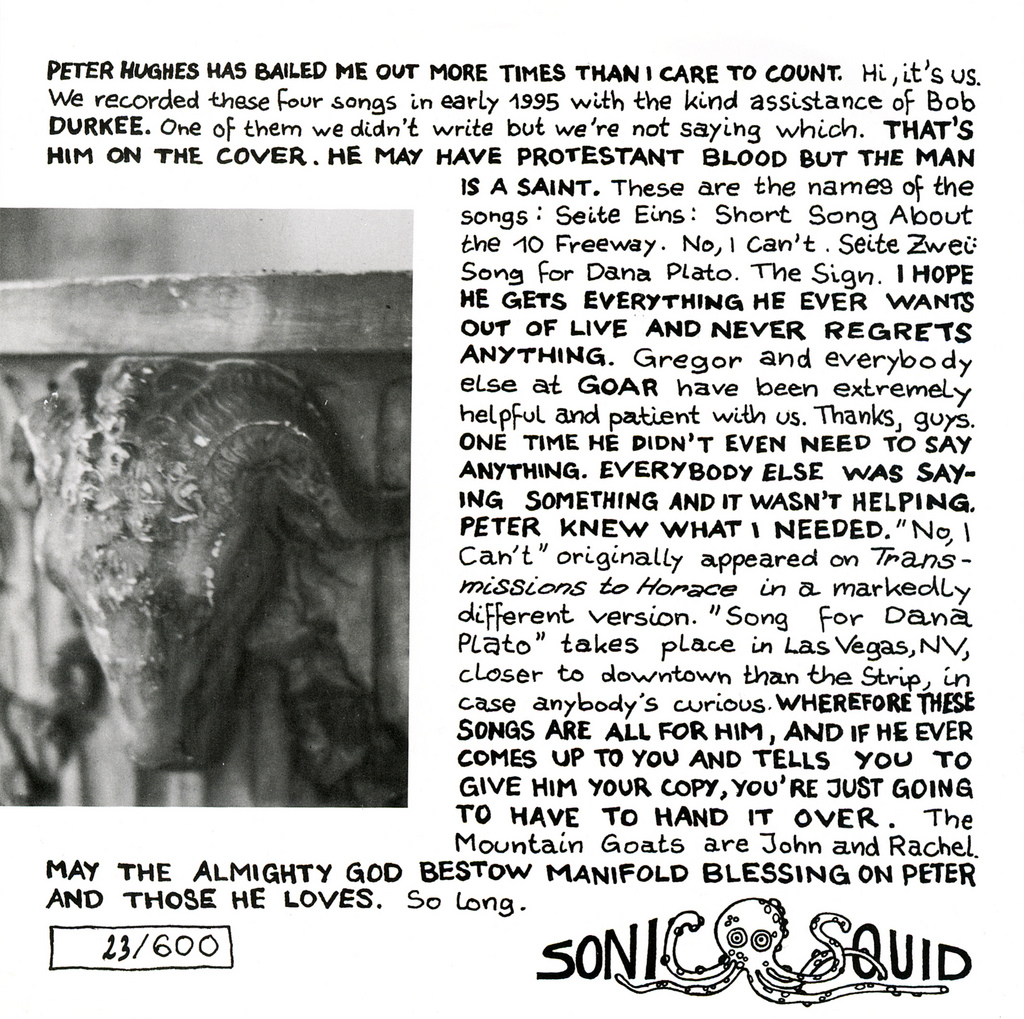 PETER HUGHES HAS BAILED ME OUT MORE TIMES THAN I CARE TO COUNT. Hi, it's us.
We recorded these four songs in early 1995 with the kind assistance of Bob
DURKEE. One of them we didn't write but we're not saying which. THAT'S
HIM ON THE COVER. HE MAY HAVE PROTESTANT BLOOD BUT THE MAN
IS A SAINT. These are the names of the
songs: Seite Eins: Short Song About
the 10 Freeway. No, I Can't. Seite Zwei:
Song for Dana Plato. The Sign. I HOPE
HE GETS EVERYTHING HE EVER WANTS
OUT OF LIVE AND NEVER REGRETS
ANYTHING. Gregor and everybody
else at GOAR have been extremely
helpful and patient with us. Thanks, guys.
ONE TIME HE DIDN'T EVEN NEED TO SAY
ANYTHING. EVERYBODY ELSE WAS SAY-
ING SOMETHING AND IT WASN'T HELPING.
PETER KNEW WHAT I NEEDED. "No, I
Can't" originally appeared on Trans-
missions to Horace in a markedly
different version. "Song for Dana
Plato" takes place in Las Vegas, NV,
closer to downtown than the Strip, in
case anybody's curious. WHEREFORE THESE
SONGS ARE ALL FOR HIM, AND IF HE EVER
COMES UP TO YOU AND TELLS YOU TO
GIVE HIM YOUR COPY, YOU'RE JUST GOING
TO HAVE TO HAND IT OVER. The
Mountain Goats are John and Rachel.
MAY THE ALMIGHTY GOD BESTOW MANIFOLD BLESSING ON PETER
AND THOSE HE LOVES. So long.
23/600
SONIC SQUID